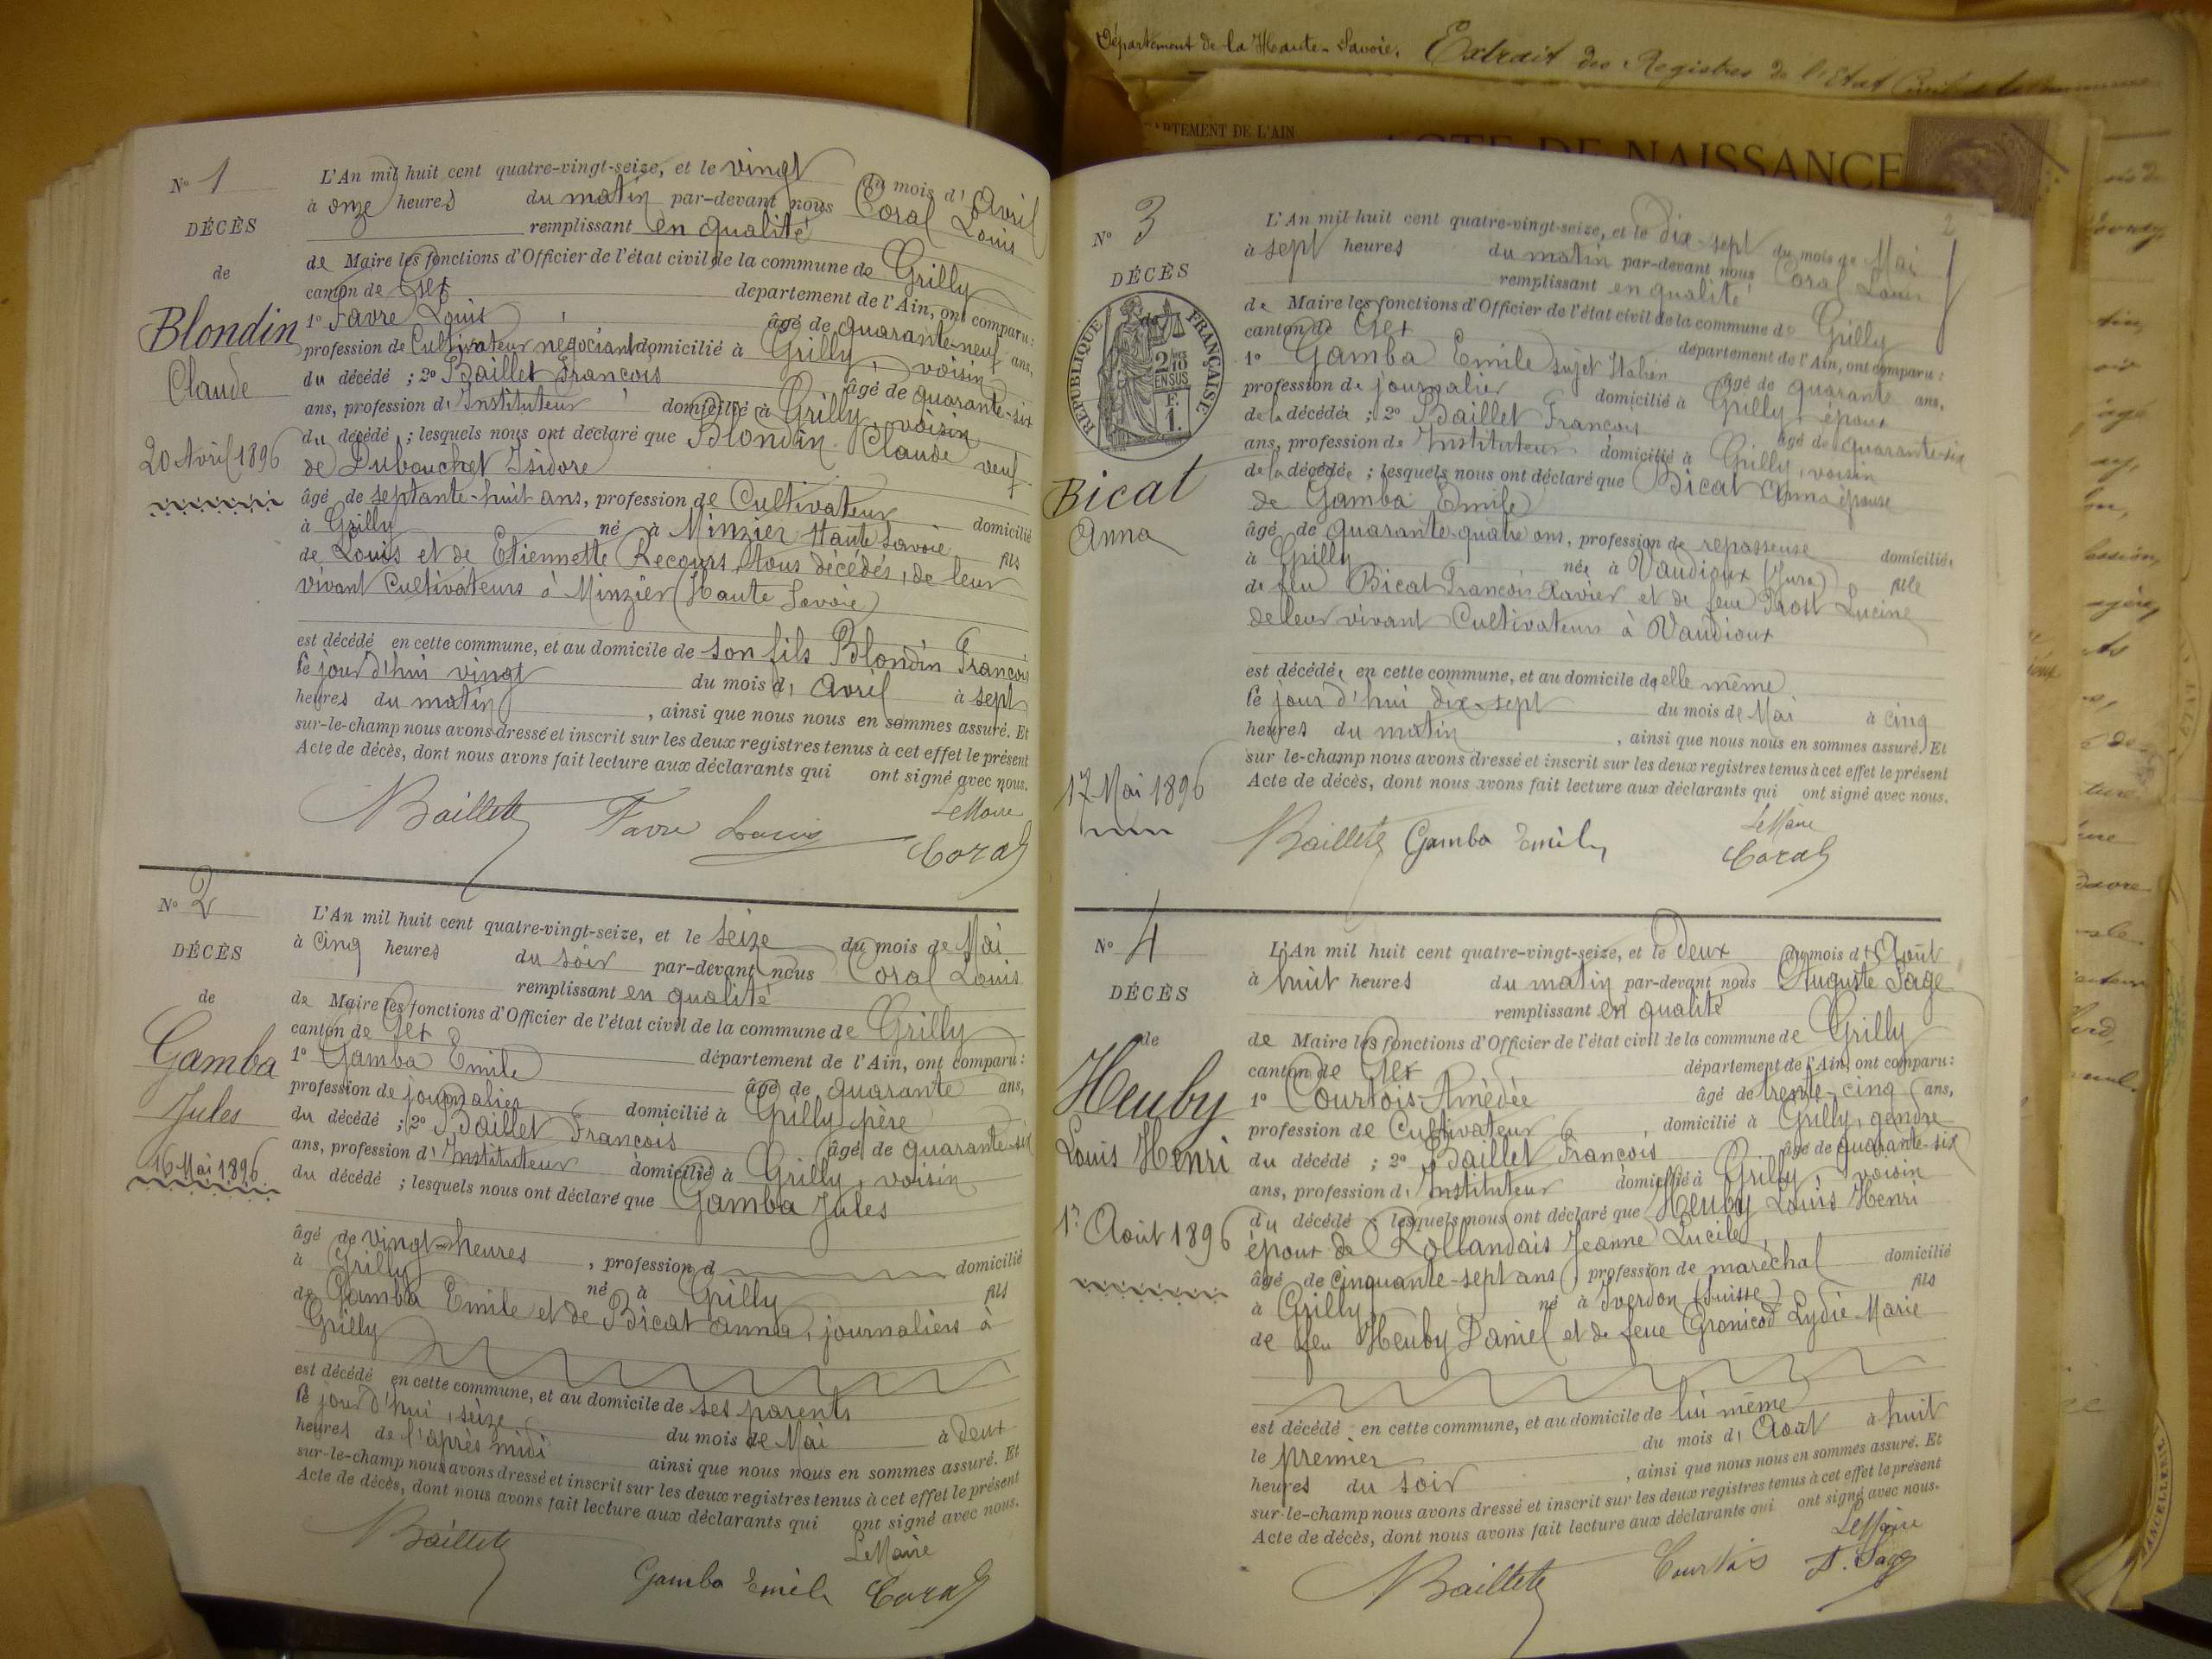 Nº 1
DÉCÈS
de
Blondin
Claude
20 Avril 1896
L'An mil huit cent quatre-vingt-seize, et le vingt du mois d' Avril
à onze heures du matin par-devant nous Coral Louis
remplissant en qualité
de Maire les fonctions d'Officier de l'état civil de la commune de Grilly
canton de Gex département de l'Ain, ont comparu :
1º Favre Louis âgé de quarante-neuf ans,
profession de Cultivateur négociant domicilié à Grilly, voisin
du décédé ; 2º Baillet François âgé de quarante-six
ans, profession d' Instituteur domicilié à Grilly, voisin
du décédé ; lesquels nous ont déclaré que Blondin Claude veuf
de Dubouchet Isidore
âgé de septante-huit ans, profession de Cultivateur domicilié
à Grilly né à Minzier Haute Savoie fils
de Louis et de Etiennette Recours, tous décédés, de leur
vivant Cultivateurs à Minzier (Haute Savoie)
est décédé en cette commune, et au domicile de son fils Blondin François
le jour d'hui vingt du mois d' Avril à sept
heures du matin, ainsi que nous nous en sommes assuré. Et
sur-le-champ nous avons dressé et inscrit sur les deux registres tenus à cet effet le présent
Acte de décès, dont nous avons fait lecture aux déclarants qui ont signé avec nous.
Le Maire
Baillet Favre Louis Coral
Nº 2
DÉCÈS
de
Gamba
Jules
16 Mai 1896
L'An mil huit cent quatre-vingt-seize, et le seize du mois de Mai
à cinq heures du soir par-devant nous Coral Louis
remplissant en qualité
de Maire les fonctions d'Officier de l'état civil de la commune de Grilly
canton de Gex département de l'Ain, ont comparu :
1º Gamba Emile âgé de quarante ans,
profession de journalier domicilié à Grilly, père
du décédé ; 2º Baillet François âgé de quarante-six
ans, profession d' Instituteur domicilié à Grilly, voisin
du décédé ; lesquels nous ont déclaré que Gamba Jules
âgé de vingt heures, profession d domicilié
à Grilly né à Grilly fils
de Gamba Emile et de Bicat Anna, journaliers à
Grilly
est décédé en cette commune, et au domicile de ses parents
le jour d'hui, seize du mois de Mai à deux
heures de l'après midi ainsi que nous nous en sommes assuré. Et
sur-le-champ nous avons dressé et inscrit sur les deux registres tenus à cet effet le présent
Acte de décès, dont nous avons fait lecture aux déclarants qui ont signé avec nous.
Le Maire
Baillet Gamba Emile Coral
Département de la Haute-Savoie. Extrait des Registres de l'Etat Civil de la Commune
DÉPARTEMENT DE L'AIN
ACTE DE NAISSANCE
2
Nº 3
DÉCÈS
de
RÉPUBLIQUE FRANÇAISE
2/10 EN SUS
F. 1.
Bicat
Anna
17 Mai 1896
L'An mil huit cent quatre-vingt-seize, et le dix-sept du mois de Mai
à sept heures du matin par-devant nous Coral Louis
remplissant en qualité
de Maire les fonctions d'Officier de l'état civil de la commune de Grilly
canton de Gex département de l'Ain, ont comparu :
1º Gamba Emile sujet Italien âgé de quarante ans,
profession de journalier domicilié à Grilly, époux
de la décédée ; 2º Baillet François âgé de quarante-six
ans, profession de Instituteur domicilié à Grilly, voisin
de la décédée ; lesquels nous ont déclaré que Bicat Anna épouse
de Gamba Emile
âgé de quarante-quatre ans, profession de repasseuse domiciliée
à Grilly née à Vaudioux (Jura) fille
de feu Bicat François Xavier et de feue Prost Lucine
de leur vivant Cultivateurs à Vaudioux
est décédée en cette commune, et au domicile d'elle même
le jour d'hui dix-sept du mois de Mai à cinq
heures du matin, ainsi que nous nous en sommes assuré. Et
sur le-champ nous avons dressé et inscrit sur les deux registres tenus à cet effet le présent
Acte de décès, dont nous avons fait lecture aux déclarants qui ont signé avec nous.
Le Maire
Baillet Gamba Emile Coral
Nº 4
DÉCÈS
de
Heuby
Louis Henri
1er Août 1896
L'An mil huit cent quatre-vingt-seize, et le deux du mois d' Août
à huit heures du matin par-devant nous Auguste Sage
remplissant en qualité
de Maire les fonctions d'Officier de l'état civil de la commune de Grilly
canton de Gex département de l'Ain, ont comparu :
1º Courtois Amédée âgé de trente-cinq ans,
profession de Cultivateur, domicilié à Grilly, gendre
du décédé ; 2º Baillet François âgé de quarante-six
ans, profession d' Instituteur domicilié à Grilly, voisin
du décédé ; lesquels nous ont déclaré que Heuby Louis Henri
époux de Rollandais Jeanne Lucile
âgé de cinquante-sept ans, profession de maréchal domicilié
à Grilly né à Yverdon (Suisse) fils
de feu Heuby Daniel et de feue Gronicod Lydie Marie
est décédé en cette commune, et au domicile de lui même
le premier du mois d' Août à huit
heures du soir, ainsi que nous nous en sommes assuré. Et
sur-le-champ nous avons dressé et inscrit sur les deux registres tenus à cet effet le présent
Acte de décès, dont nous avons fait lecture aux déclarants qui ont signé avec nous.
Le Maire
Baillet Courtois A. Sage